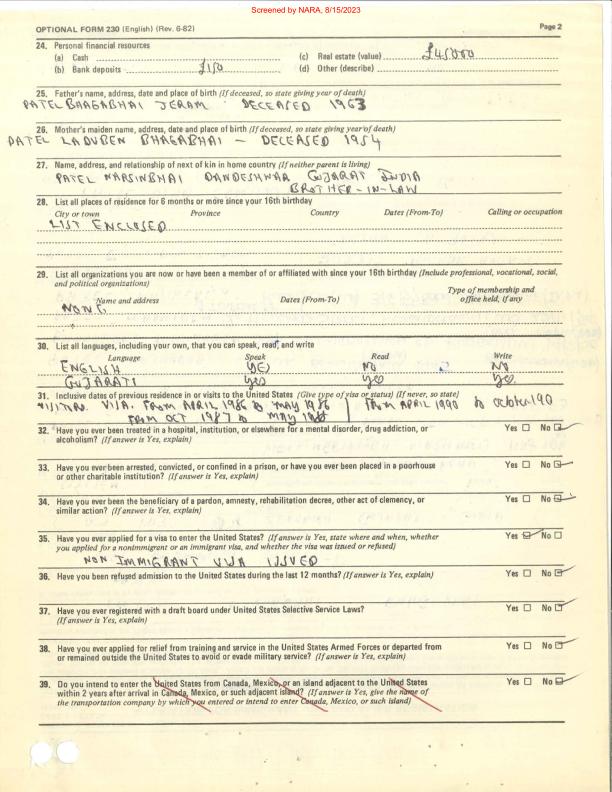 Screened by NARA, 8/15/2023
OPTIONAL FORM 230 (English) (Rev. 6-82)
Page 2
24. Personal financial resources
(a) Cash
(c) Real estate (value) £45000
(b) Bank deposits £150
(d) Other (describe)
25. Father's name, address, date and place of birth (If deceased, so state giving year of death)
PATEL BHAGABHAI JERAM DECEASED 1963
26. Mother's maiden name, address, date and place of birth (If deceased, so state giving year of death)
PATEL LADUBEN BHAGABHAI – DECEASED 1954
27. Name, address, and relationship of next of kin in home country (If neither parent is living)
PATEL NARSINBHAI DANDESHWAR GUJARAT INDIA
BROTHER-IN-LAW
28. List all places of residence for 6 months or more since your 16th birthday
City or town Province Country Dates (From-To) Calling or occupation
LIST ENCLOSED
29. List all organizations you are now or have been a member of or affiliated with since your 16th birthday (Include professional, vocational, social,
and political organizations)
Type of membership and
Name and address Dates (From-To) office held, if any
NONE
30. List all languages, including your own, that you can speak, read, and write
Language Speak Read Write
ENGLISH YES NO NO
GUJARATI yes yes yes
31. Inclusive dates of previous residence in or visits to the United States (Give type of visa or status) (If never, so state)
VISA. FROM APRIL 1986 to MAY 1986 FROM APRIL 1990 to October 190
FROM OCT 1987 to MAY 1988
32. Have you ever been treated in a hospital, institution, or elsewhere for a mental disorder, drug addiction, or
alcoholism? (If answer is Yes, explain)
Yes No
33. Have you ever been arrested, convicted, or confined in a prison, or have you ever been placed in a poorhouse
or other charitable institution? (If answer is Yes, explain)
Yes No
34. Have you ever been the beneficiary of a pardon, amnesty, rehabilitation decree, other act of clemency, or
similar action? (If answer is Yes, explain)
Yes No
35. Have you ever applied for a visa to enter the United States? (If answer is Yes, state where and when, whether
you applied for a nonimmigrant or an immigrant visa, and whether the visa was issued or refused)
Yes No
NON IMMIGRANT VISA ISSUED
36. Have you been refused admission to the United States during the last 12 months? (If answer is Yes, explain)
Yes No
37. Have you ever registered with a draft board under United States Selective Service Laws?
(If answer is Yes, explain)
Yes No
38. Have you ever applied for relief from training and service in the United States Armed Forces or departed from
or remained outside the United States to avoid or evade military service? (If answer is Yes, explain)
Yes No
39. Do you intend to enter the United States from Canada, Mexico, or an island adjacent to the United States
within 2 years after arrival in Canada, Mexico, or such adjacent island? (If answer is Yes, give the name of
the transportation company by which you entered or intend to enter Canada, Mexico, or such island)
Yes No